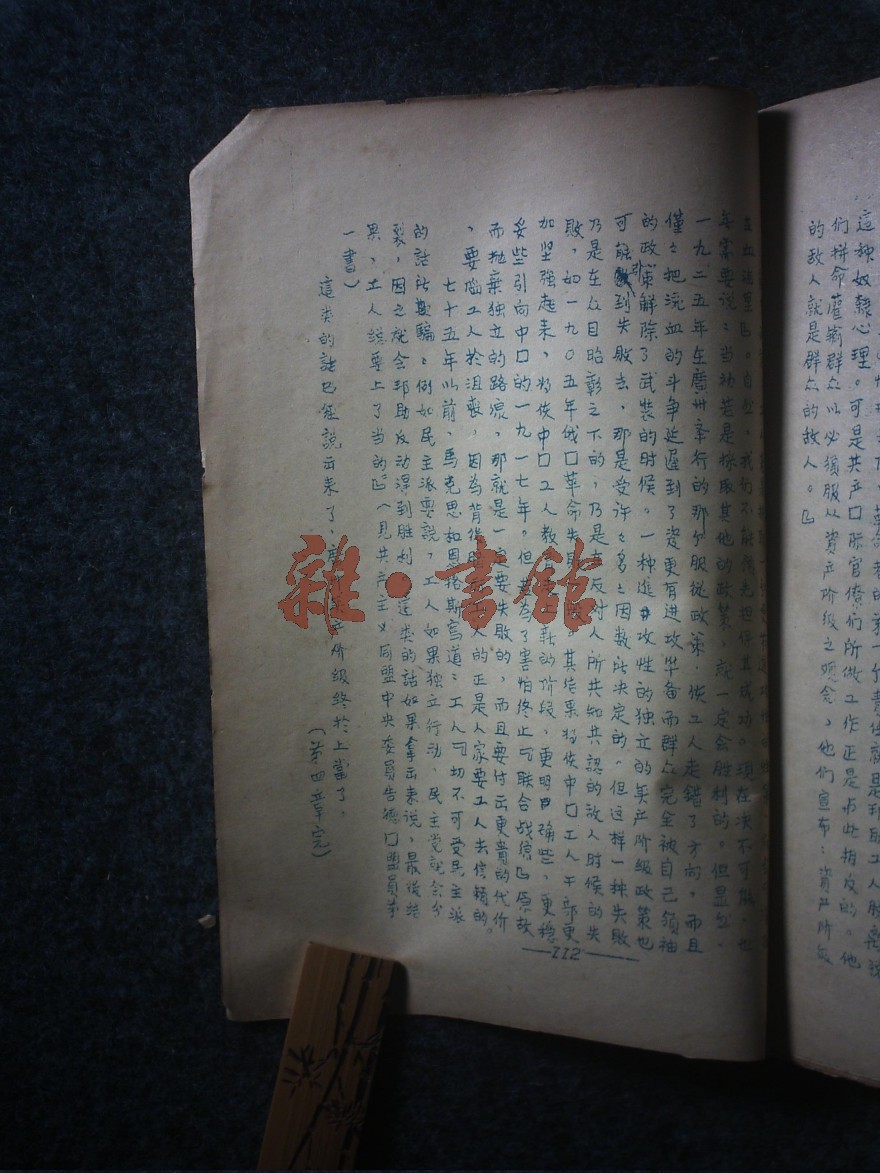 這种奴隸心理。可是共产囗际官僚们所做工作正是与此相反的。他
们拼命灌输群众以必须服从資产阶级之观念,他们宣布:資产阶级
的敌人就是群众的敌人。』
在如這里』。自然,我们不能預先担保其成功。現在决不可能,也
毋需要说:当初若是採取其他的政策,就一定会胜利的。但显然,
一九二五年在廣州举行的那个服從政策,使工人走錯了方向,而且
僅々把流血的斗争延遲到了資更有进攻准备而群众完全被自己領袖
的政策解除了武装的时候。一种進攻性的独立的無产階级政策也
可能到失敗去,那是受许々多々因数所决定的。但这样一种失敗
乃是在众目昭彰之下的,乃是在反対人所共知共認的敌人时候的失
敗,如一九〇五年俄囗革命失其结果将使中囗工人干部更
加坚強起来,将使中囗工人教新的阶段,更明确些,更穏
妥些引向中囗的一九一七年。但若為了害怕终止『联合战線』原故
而抛棄独立的路線,那就是一定要失敗的,而且要付出更貴的代价
,要陷工人於沮喪,因為背後的正是人家要工人去信頼的。
七十五年以前,馬克思和因格斯寫道:工人『切不可受民主派
的話所欺騙。例如民主派要説,工人如果独立行动,民主党就会分
裂,因之就会邦助反动得到胜利。這类的話如果拿出来说,最後結
果,工人總要上了当的』(見共产主义同盟中央委員告德囗盟員书
一書)
這类的話已経説出来了。阶级終於上當了。
(第四章完)
112
雜·書館